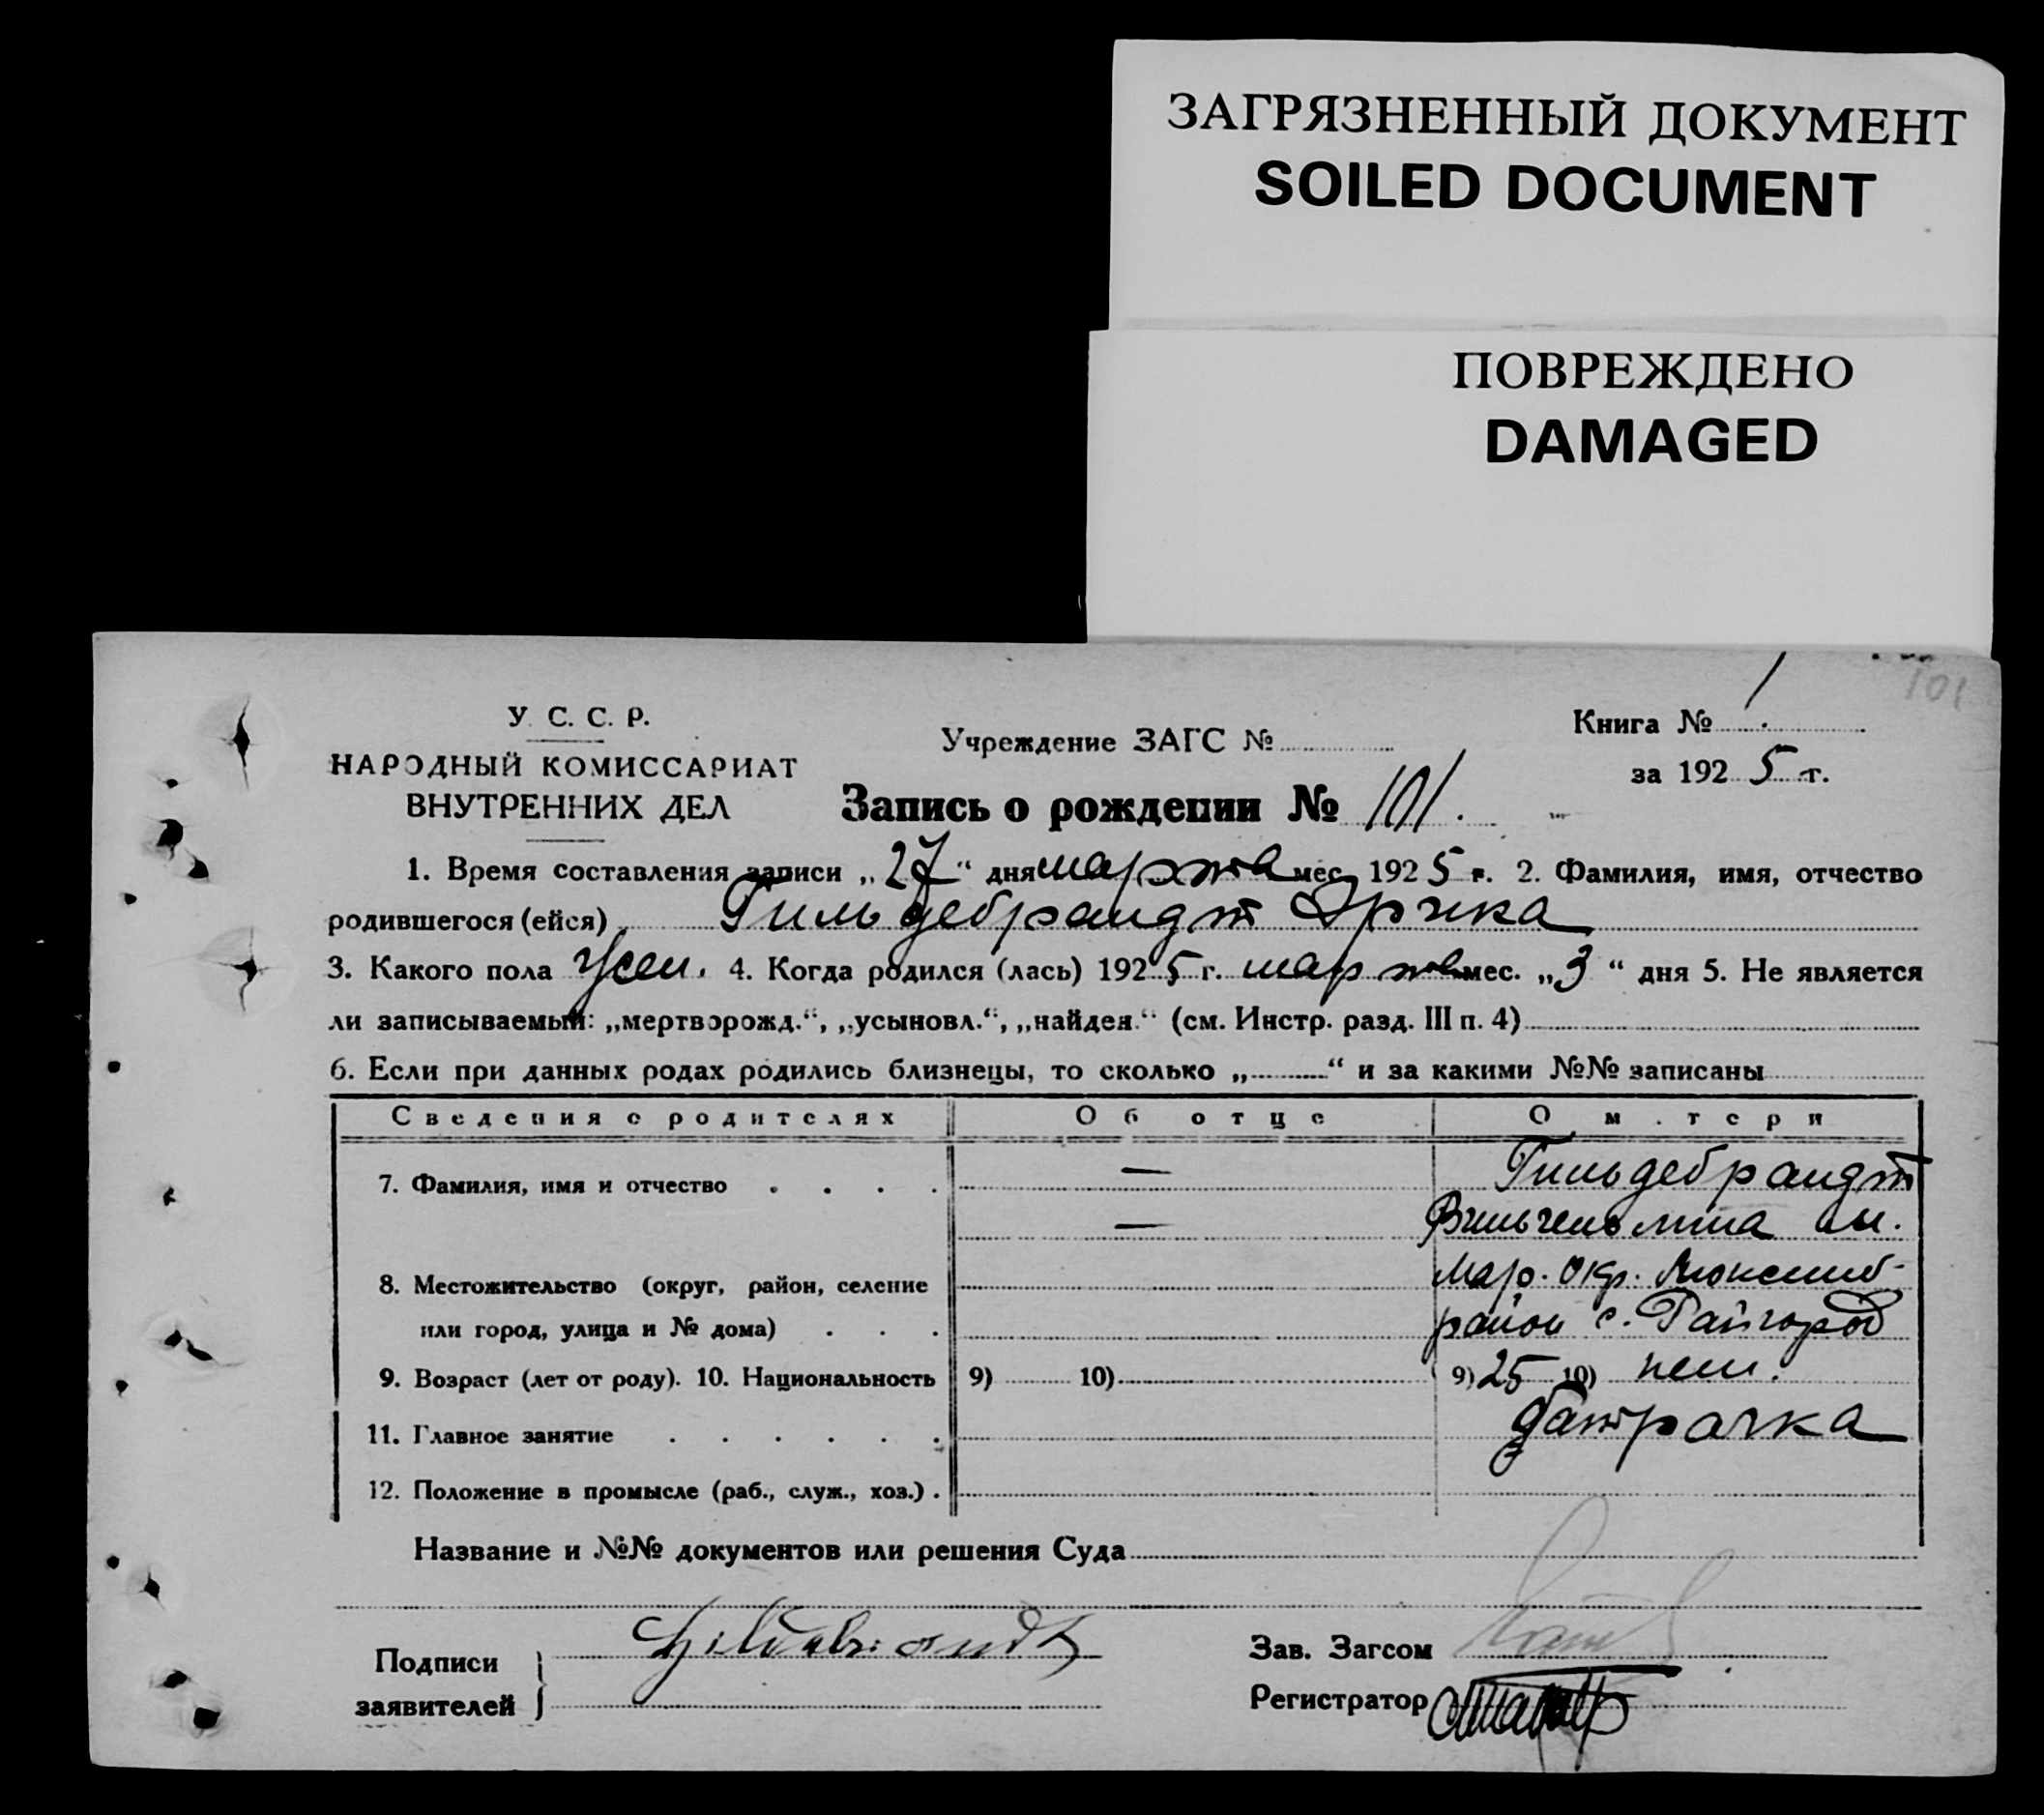 ЗАГРЯЗНЕННЫЙ ДОКУМЕНТ
SOILED DOCUMENT
ПОВРЕЖДЕНО
DAMAGED
101
У. С. С. Р.
НАРОДНЫЙ КОМИССАРИАТ
ВНУТРЕННИХ ДЕЛ
Учреждение ЗАГС №
Книга № 1.
за 1925 г.
Запись о рождении № 101.
1. Время составления записи „27“ дня марта мес. 1925 г. 2. Фамилия, имя, отчество
родившегося (ейся) Гильдебрандт Эрика
3. Какого пола жен. 4. Когда родился (лась) 1925 г. марта мес. „3“ дня 5. Не является
ли записываемый: „мертворожд.“, „усыновл.“, „найден.“ (см. Инстр. разд. III п. 4)
6. Если при данных родах родились близнецы, то сколько „ “ и за какими №№ записаны
Сведения о родителях Об отце О м.тери
7. Фамилия, имя и отчество — Гильдебрандт
— Вильгельмина
8. Местожительство (округ, район, селение Мар. Окр.
или город, улица и № дома) район с. Райгород
9. Возраст (лет от роду). 10. Национальность 9) 10) 9) 25 10) нем.
11. Главное занятие батрачка
12. Положение в промысле (раб., служ., хоз.)
Название и №№ документов или решения Суда
Подписи заявителей Hildebrandt
Зав. Загсом
Регистратор